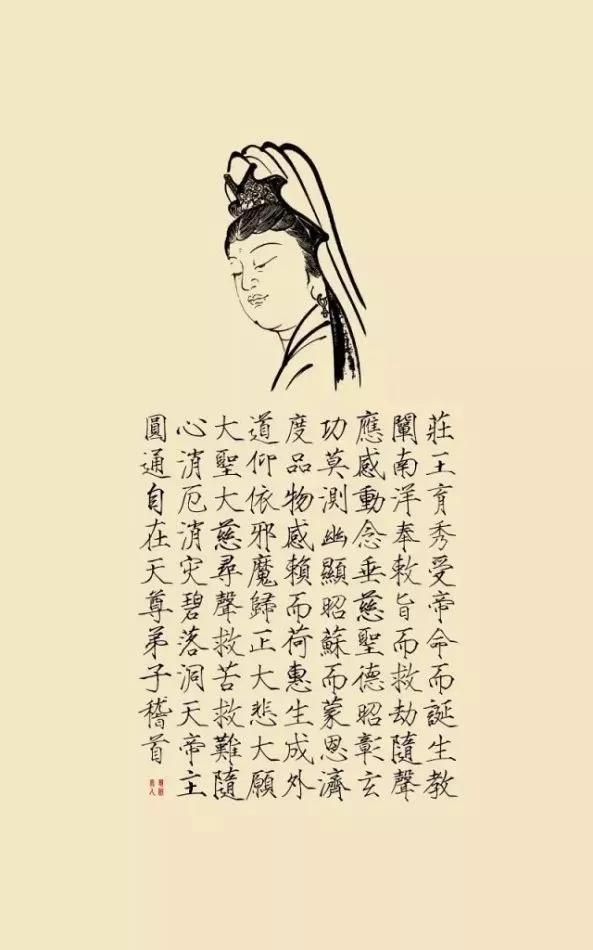 莊王育秀受帝命而誕生教
闡南洋奉敕旨而救劫隨聲
應感動念垂慈聖德昭彰玄
功莫測幽顯昭蘇而蒙恩濟
度品物感賴而荷惠生成外
道仰依邪魔歸正大悲大願
大聖大慈尋聲救苦救難隨
心消厄消灾碧落洞天帝主
圓通自在天尊弟子稽首